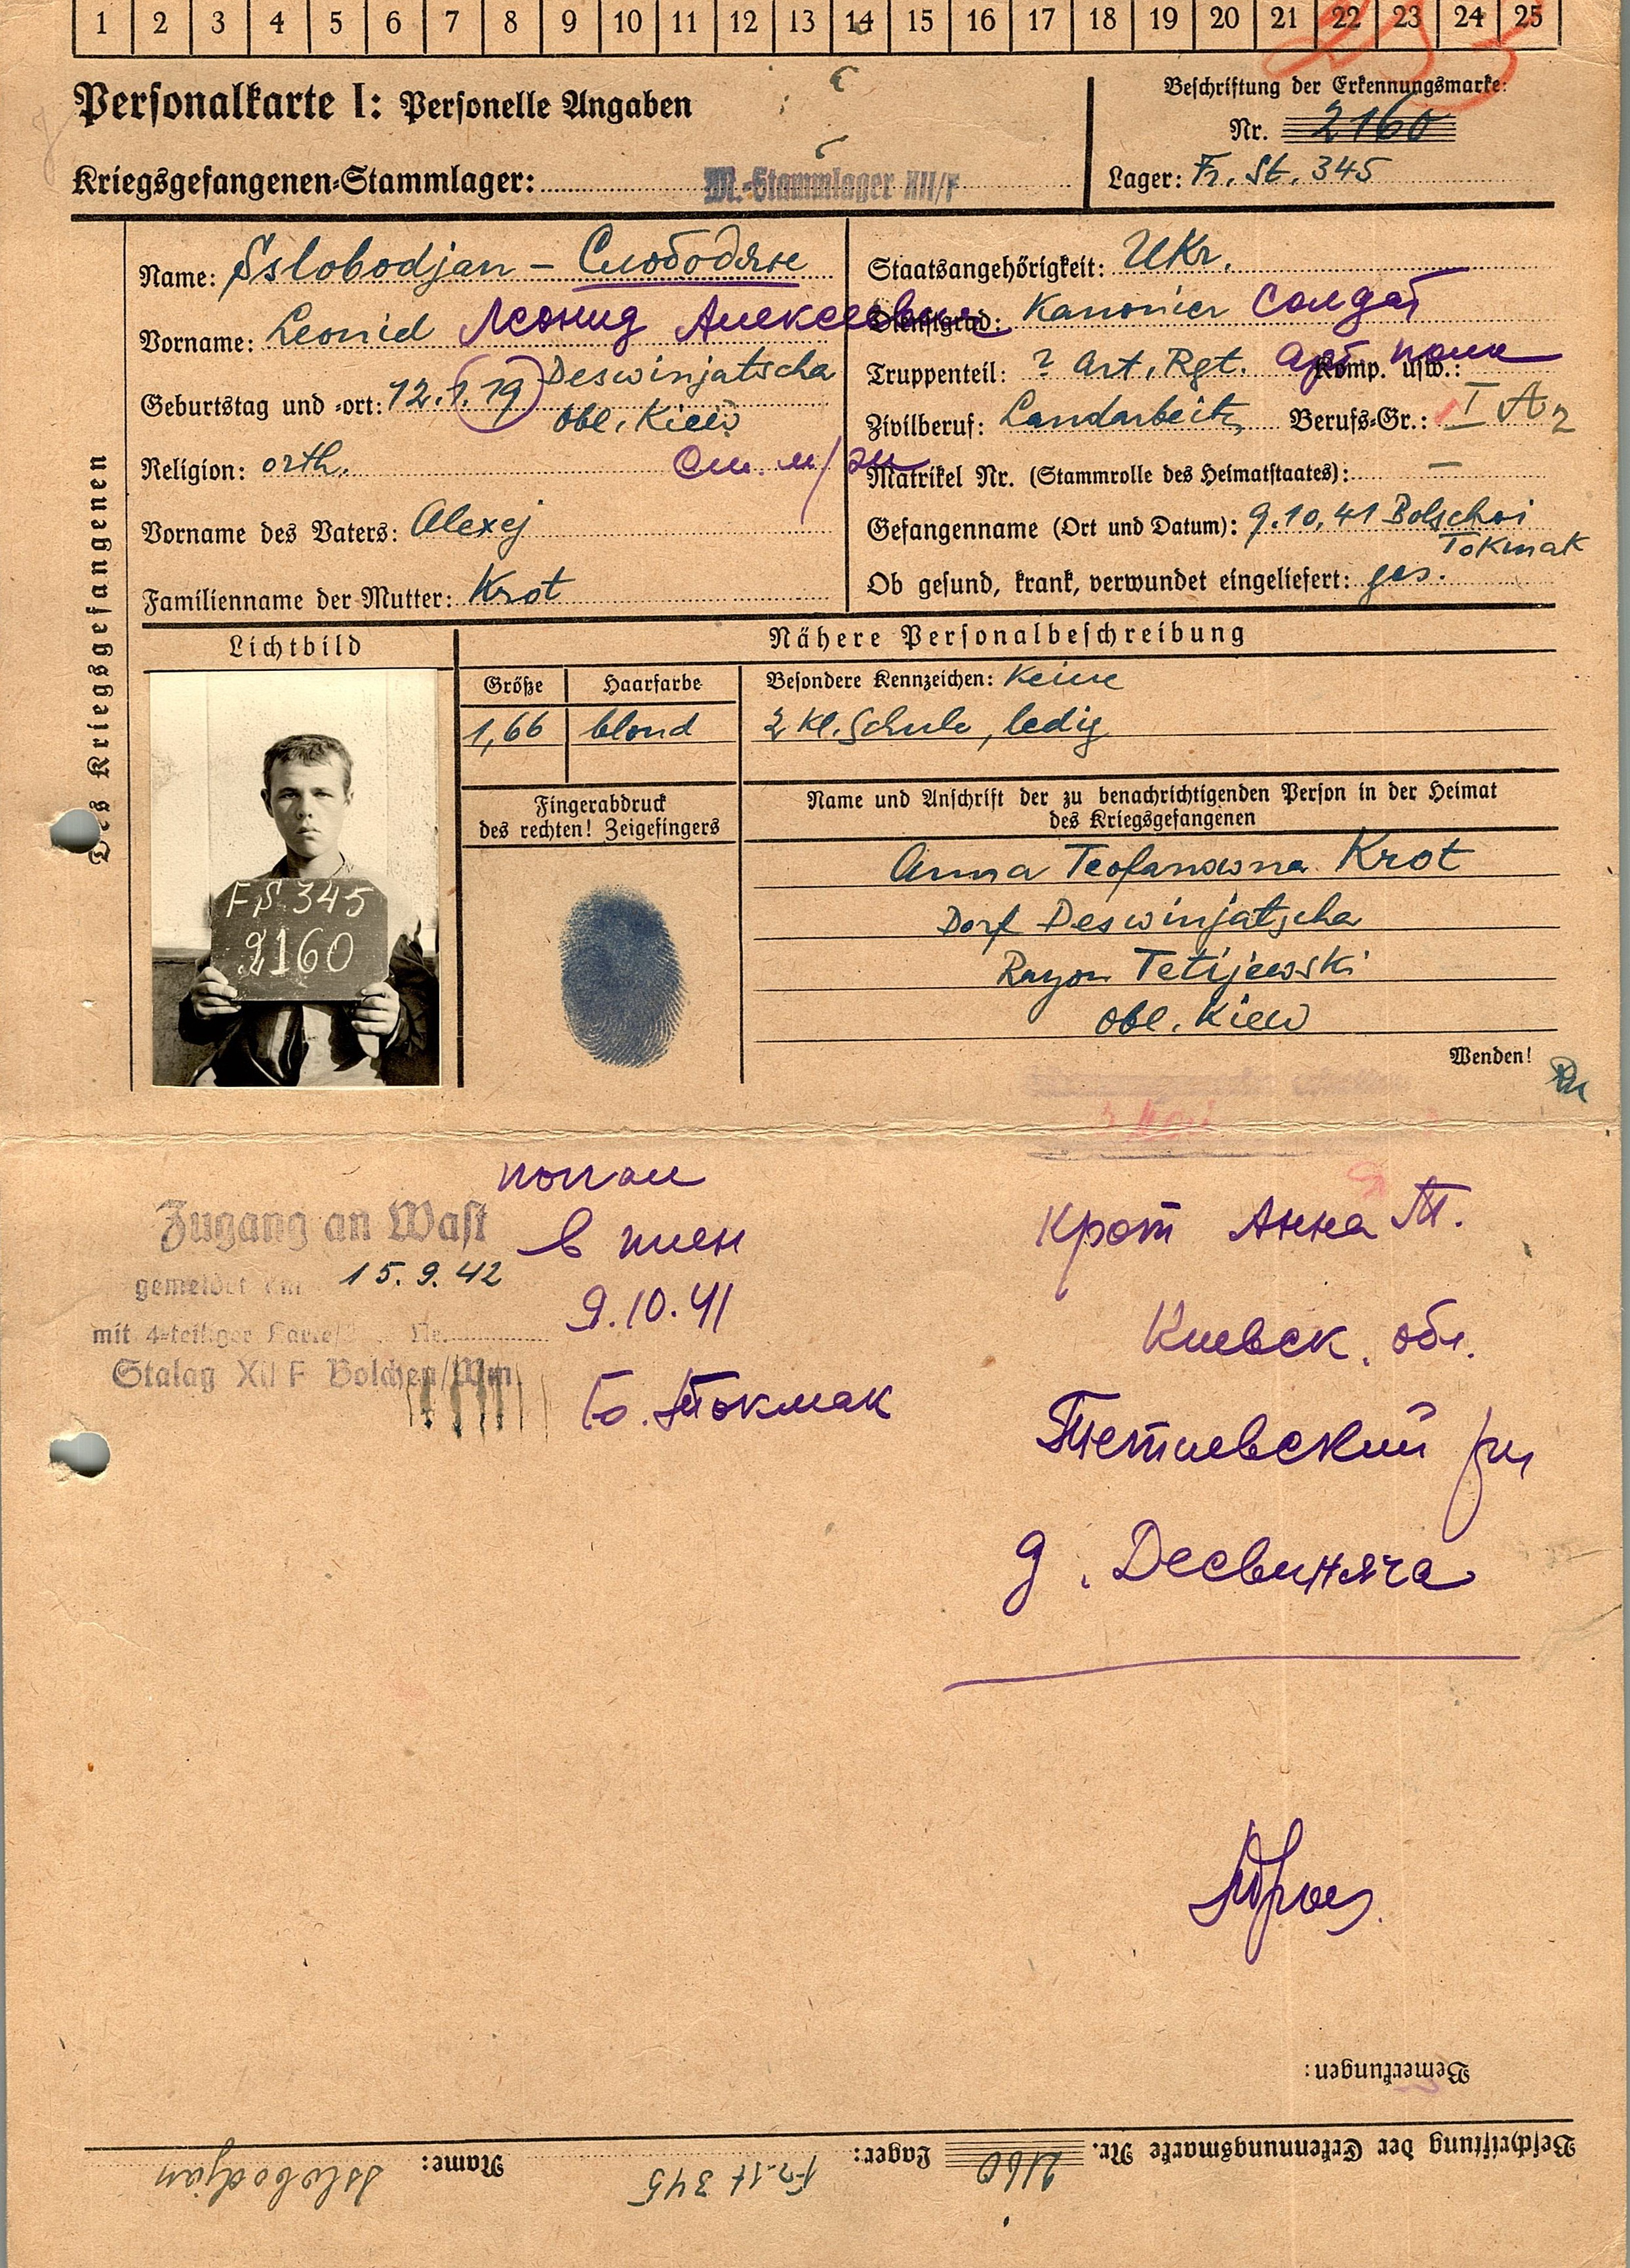 1 2 3 4 5 6 7 8 9 10 11 12 13 14 15 16 17 18 19 20 21 22 23 24 25
Personalkarte I: Personelle Angaben
Kriegsgefangenen-Stammlager: M.-Stammlager XII/F
Beschriftung der Erkennungsmarke:
Nr. 2160
Lager: Fr. St. 345
Des Kriegsgefangenen
Name: Sslobodjan - Слободяне
Vorname: Leonid Леонид Алексеевич
Geburtstag und -ort: 12.1.19 Deswinjatscha
Obl. Kiew
Religion: orth.
Vorname des Vaters: Alexej
Familienname der Mutter: Krot
Staatsangehörigkeit: Ukr.
Dienstgrad: Kanonier Солдат
Truppenteil: ? Art. Rgt. Арт. полк Komp. usw.:
Zivilberuf: Landarbeit. Berufs-Gr.: I A2
Matrikel Nr. (Stammrolle des Heimatstaates): —
Gefangenname (Ort und Datum): 9.10.41 Bolschoi
Tokmak
Ob gesund, krank, verwundet eingeliefert: ges.
Lichtbild
FS 345
2160
Nähere Personalbeschreibung
Größe Haarfarbe
1,66 blond
Besondere Kennzeichen: Keine
2 Kl. Schule, ledig
Fingerabdruck
des rechten! Zeigefingers
Name und Anschrift der zu benachrichtigenden Person in der Heimat
des Kriegsgefangenen
Anna Teofanowna Krot
Dorf Deswinjatscha
Rayon Tetijewski
Obl. Kiew
Wenden!
Zugang an Wast
gemeldet am 15.9.42
mit 4-teiliger Nr.
Stalag XII F Bolchen/Wm
попал
в плен
9.10.41
Б. Токмак
Крот Анна Т.
Киевск. обл.
Тетиевский рн
д. Десвиняча
Bemerkungen:
Beschriftung der Erkennungsmarke Nr. 2160 Lager: Fr. St 345 Name: Sslobodjan